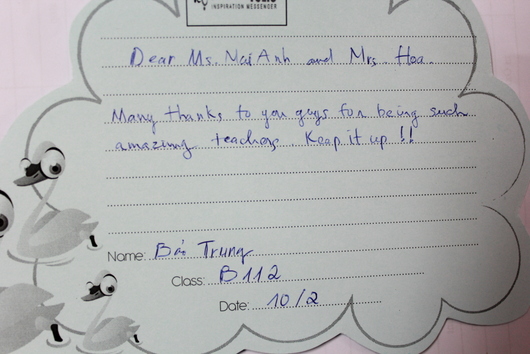 INSPIRATION MESSENGER
Dear Ms. Mai Anh and Mrs. Hoa.
Many thanks to you guys for being such
amazing teachers Keep it up !!
Name: Bá Trung
Class: B112
Date: 10/2